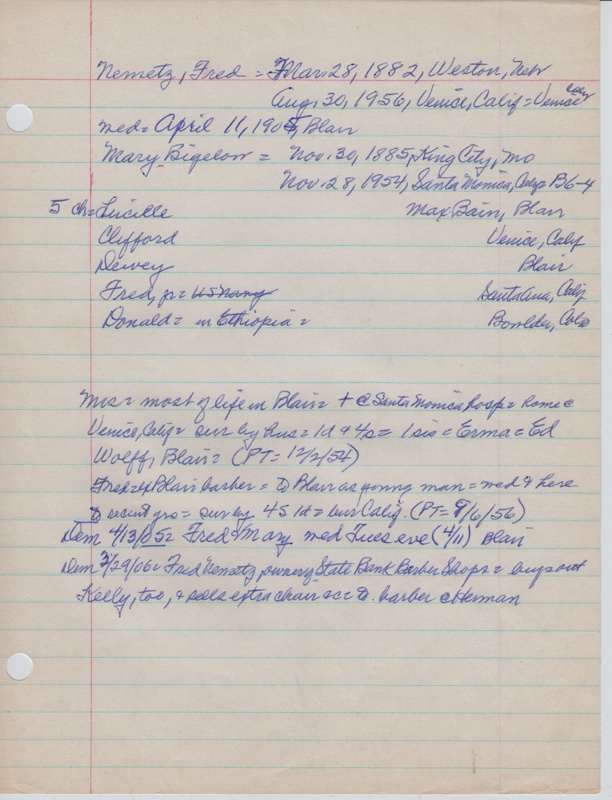 Nemetz, Fred = Mar. 28, 1882, Weston, Nebr
Aug. 30, 1956, Venice, Calif = Venice
wed = April 11, 1905, Blair
Mary Bigelow = Nov. 30, 1885, King City, Mo
Nov. 28, 1954, Santa Monica, Calif = B6-4
5 ch = Lucille Max Bain, Blair
Clifford Venice, Calif
Dewey Blair
Fred, jr = US Navy Santa Ana, Calif
Donald = in Ethiopia = Boulder, Colo
Mrs = most of life in Blair = + @ Santa Monica hosp = Rome @
Venice, Calif = sur by hus = 1d & 4s = 1 sis = Erma = Ed
Wolff, Blair = (PT = 12/2/54)
Fred = of Blair barber = to Blair as young man = wed & here
to recent yrs = sur by 4S 1d = bur Calif. (PT = 9/6/56)
Dem 4/13/05 = Fred = Mary wed Tues eve (4/11) Blair
Dem 3/29/06 = Fred Nemetz, owner, State Bank Barber Shops = buys out
Kelly, too, & adds extra chair &c = barber Herman